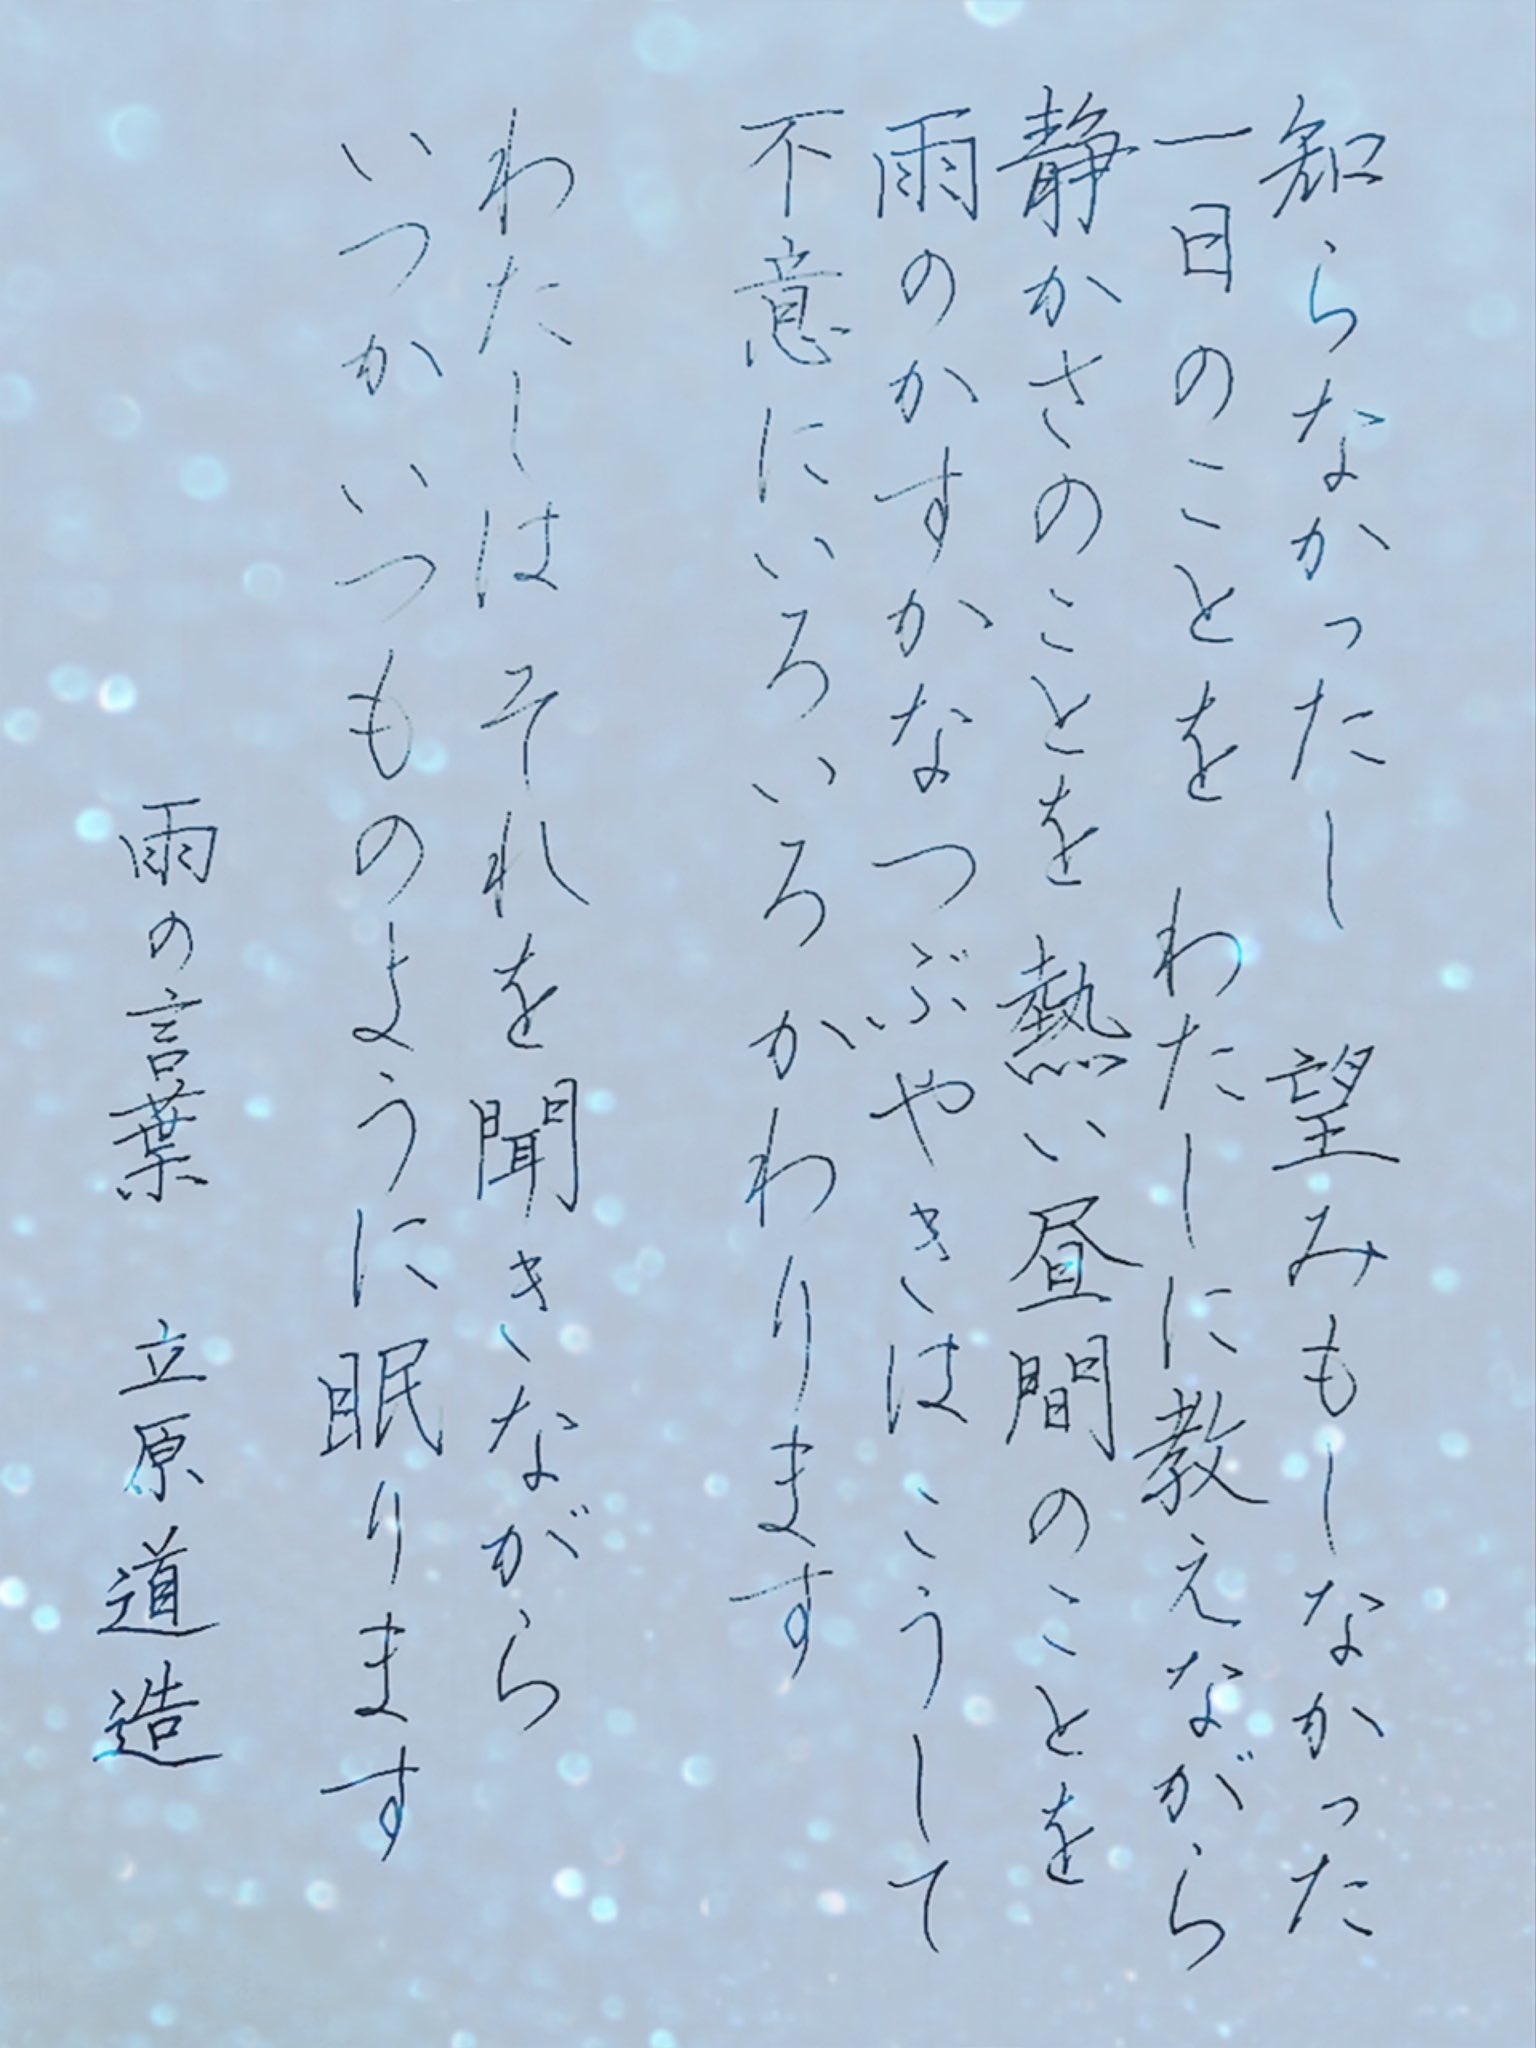 知らなかったし 望みもしなかった
一日のことを わたしに教えながら
静かさのことを 熱い昼間のことを
雨のかすかなつぶやきは こうして
不意にいろいろかわります
わたしは それを 聞きながら
いつか いつものように眠ります
雨の言葉 立原道造